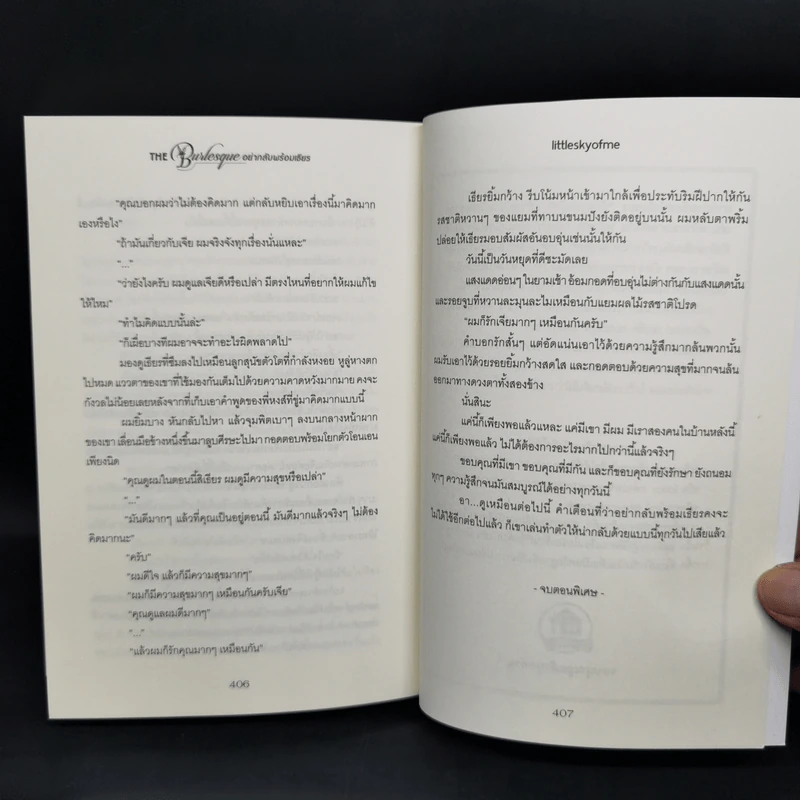 THE Burlesque อย่ากลับพร้อมเธียร
"คุณบอกผมว่าไม่ต้องคิดมาก แต่กลับหยิบเอาเรื่องนี้มาคิดมาก
เองหรือไง"
"ถ้ามันเกี่ยวกับเจีย ผมจริงจังทุกเรื่องนั่นแหละ"
"..."
"ว่ายังไงครับ ผมดูแลเจียดีหรือเปล่า มีตรงไหนที่อยากให้ผมแก้ไข
ให้ไหม"
"ทำไมคิดแบบนั้นล่ะ"
"ก็เผื่อบางทีผมอาจจะทำอะไรผิดพลาดไป"
มองดูเธียรที่ซึมลงไปเหมือนลูกสุนัขตัวโตที่กำลังหงอย หูลู่หางตก
ไปหมด แววตาของเขาที่ใช้มองกันเต็มไปด้วยความคาดหวังมากมาย คงจะ
กังวลไม่น้อยเลยหลังจากที่เก็บเอาคำพูดของพี่หงส์ที่ขู่มาคิดมากแบบนี้
ผมยิ้มบาง หันกลับไปหา แล้วจุมพิตเบาๆ ลงบนกลางหน้าผาก
ของเขา เลื่อนมือข้างหนึ่งขึ้นมาลูบศีรษะไปมา กอดตอบพร้อมโยกตัวโอนเอน
เพียงนิด
"คุณดูผมในตอนนี้สิเธียร ผมดูมีความสุขหรือเปล่า"
"..."
"มันดีมากๆ แล้วที่คุณเป็นอยู่ตอนนี้ มันดีมากแล้วจริงๆ ไม่ต้อง
คิดมากนะ"
"ครับ"
"ผมดีใจ แล้วก็มีความสุขมากๆ"
"ผมก็มีความสุขมากๆ เหมือนกันครับเจีย"
"คุณดูแลผมดีมากๆ"
"..."
"แล้วผมก็รักคุณมากๆ เหมือนกัน"
406
littleskyofme
เธียรยิ้มกว้าง รีบโน้มหน้าเข้ามาใกล้เพื่อประทับริมฝีปากให้กัน
รสชาติหวานๆ ของแยมที่ทาบนขนมปังยังติดอยู่บนนั้น ผมหลับตาพริ้ม
ปล่อยให้เธียรมอบสัมผัสอันอบอุ่นเช่นนั้นให้กัน
วันนี้เป็นวันหยุดที่ดีชะมัดเลย
แสงแดดอ่อนๆ ในยามเช้า อ้อมกอดที่อบอุ่นไม่ต่างกันกับแสงแดดนั้น
และรอยจูบที่หวานละมุนละไมเหมือนกับแยมผลไม้รสชาติโปรด
"ผมก็รักเจียมากๆ เหมือนกันครับ"
คำบอกรักสั้นๆ แต่อัดแน่นเอาไว้ด้วยความรู้สึกมากล้นพวกนั้น
ผมรับเอาไว้ด้วยรอยยิ้มกว้างสดใส และกอดตอบด้วยความสุขที่มากจนล้น
ออกมาทางดวงตาทั้งสองข้าง
นั่นสินะ
แค่นี้ก็เพียงพอแล้วแหละ แค่มีเขา มีผม มีเราสองคนในบ้านหลังนี้
แค่นี้ก็เพียงพอแล้ว ไม่ได้ต้องการอะไรมากไปกว่านี้แล้วจริงๆ
ขอบคุณที่มีเขา ขอบคุณที่มีกัน และก็ขอบคุณที่ยังรักษา ยังถนอม
ทุกๆ ความรู้สึกจนมันสมบูรณ์ได้อย่างทุกวันนี้
อา...ดูเหมือนต่อไปนี้ คำเตือนที่ว่าอย่ากลับพร้อมเธียรคงจะ
ไม่ได้ใช้อีกต่อไปแล้ว ก็เขาเล่นทำตัวให้น่ากลับด้วยแบบนี้ทุกวันไปเสียแล้ว
- จบตอนพิเศษ -
407